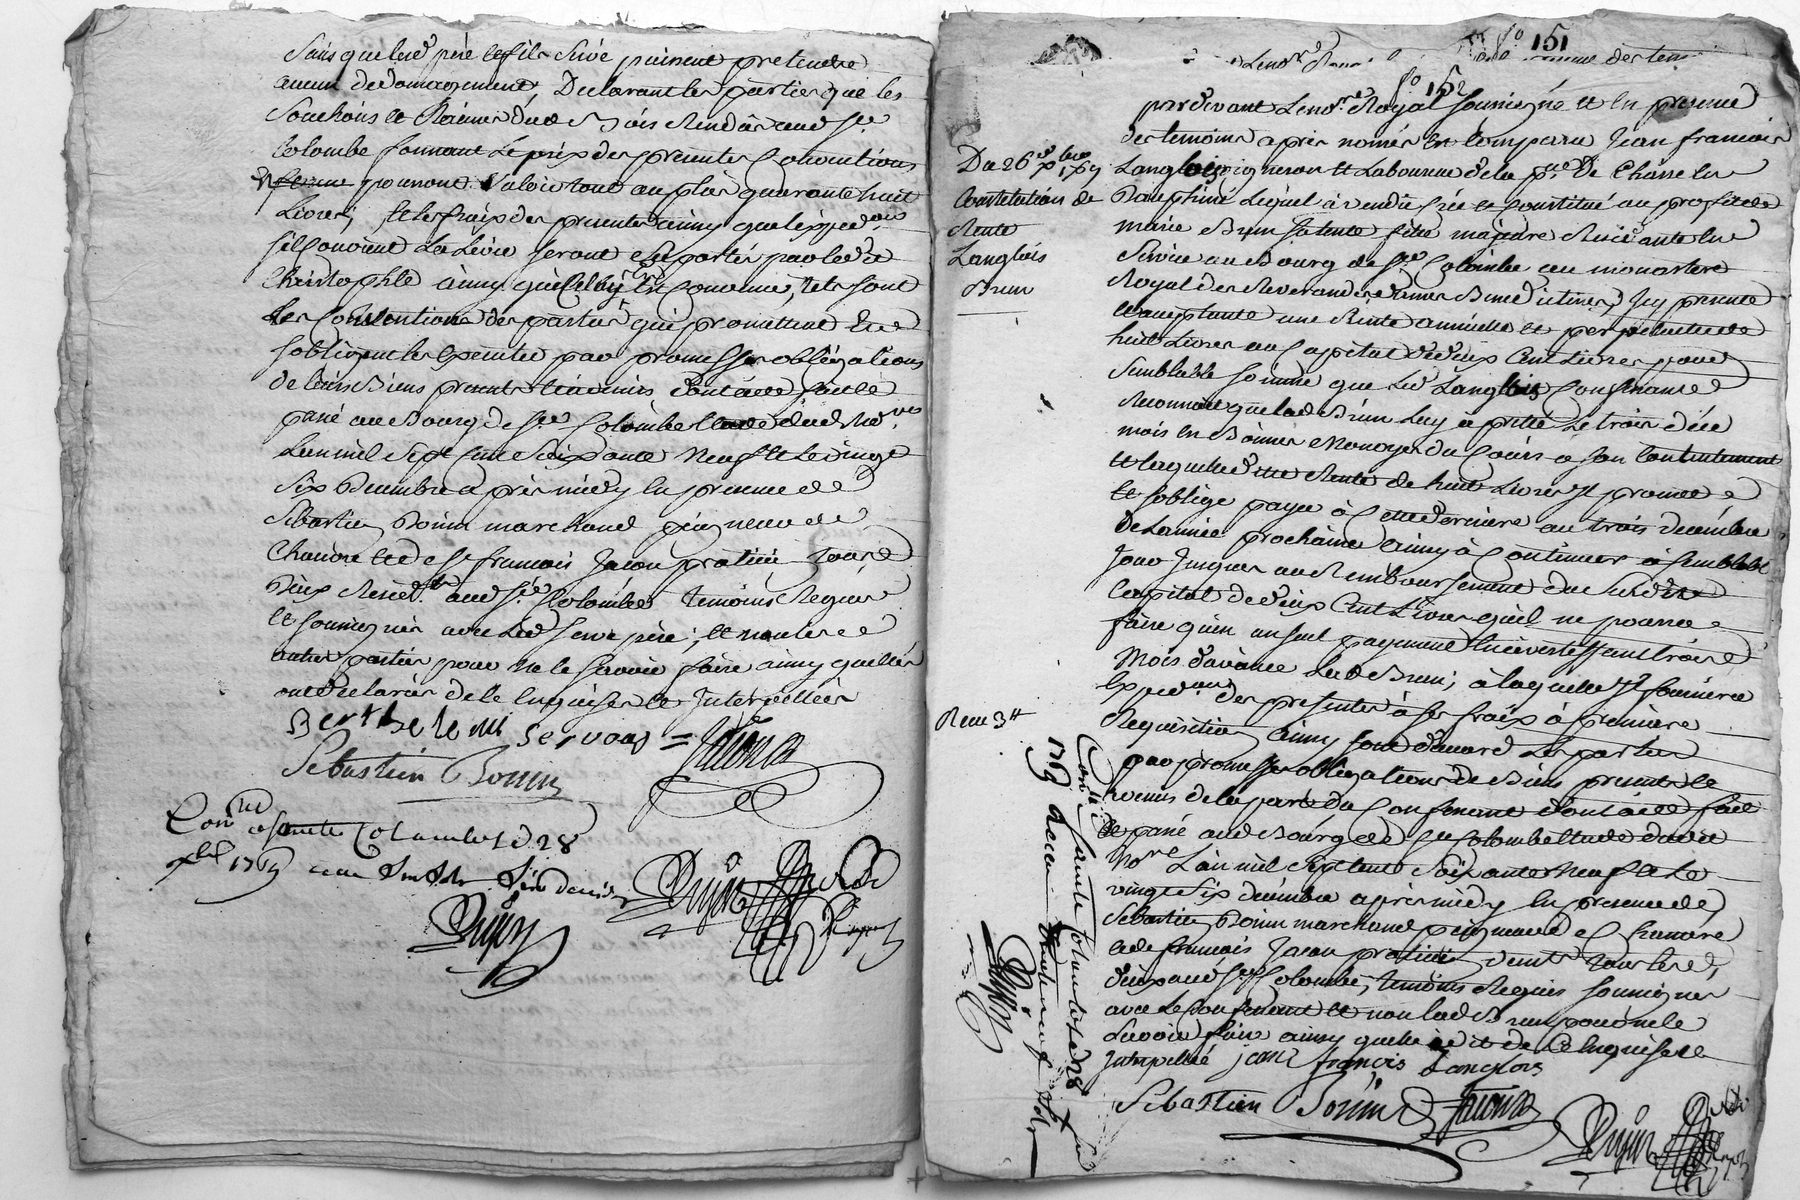 Sans que led. père et fils Servé puissent pretendre
aucun dedomagement, Declarant les parties que les
Souchons et Racines dud. Bois Rendus aud. Ste
Colombe formant le prix des presentes Conventions
pouront valoir tout au plus quarante huit
Livres, et les fraix des presentes ainsy que l'expedon
seront suportés par led.
Christophle ainsy convenu, tels sont
Les Conventions des parties qui promettent et
sobligent les executer par promesses obligations
de leurs Biens presents et avenirs dont acte, fait et
passé au Bourg de Ste Colombe Etude dud. Nore
L'an mil Sept Cent Soixante Neuf et le vingt
Six Decembre après midy en presence de
Sebastien Bonin marchand peigneur de
Chanvre et de Sr francois Jacou praticien tous
Deux Resid.ts aud. Ste Colombe Temoins Requis
et soussignés avec led. Servé père; et non les
autres parties pour ne le scavoir faire ainsy quelles
ont declarées de ce enquises et Interpellées
Berthelemi servoas = Jacou
Sebastien Bonin
Con.lé a Sainte Colombe le 28
xbre 1769
Dujin
Dujin
fo 151
fo 152
Du 26e xbre 1769
Constitution de
Rente
Langlois
Brun
pardevant Le nore Royal soussigné et en presence
des temoins après només En Comparu Jean francois
Langlois vigneron et Laboureur de la psse De Chasse en
Dauphiné Lequel a vendu Crée et Constitué au profit de
marie Brun Servante fille majeure Residante en
Service au Bourg de Ste Colombe au monastere
Royal des Reverandes dames Benedictines, Icy presente
et acceptante une Rente annuelle et perpetuelle de
huit Livres au Capital de deux Cent Livres pour
Semblable somme que Led. Langlois Confesse
Reconnoit que lad. Brun Luy a pretté Le trois du
mois en Bonnes Monoye du Cours a son Contentement
et laquelle dite Rente de huit Livres Il promet
et soblige payer à Cette derniere au trois decembre
De L'année prochaine ainsy à Continuer à semblable
Jour Jusques au Remboursement du Susdit
Capital de deux Cent Livres qu'il ne pourra
faire qu'en un seul payement en avertissant trois
Mois d'avance Lad. Brun; à laquelle Il fournira
Expedon des presentes à ses fraix à premiere
Requisition, ainsy sont d'accord Les parties
par promesses obligations de Biens presents et
avenis de la part du Confessant dont acte fait
et passé aud. Bourg de Ste Colombe Etude dudit
Nore L'an mil Sept cent Soixante Neuf et Le
vingt Six decembre après midy en presence de
Sebastien Bonin marchand peigneur de Chanvre
et de francois Jacou praticien tous
deux aud. Ste Colombe, temoins Requis soussignés
avec Le Confessant et non lad. Brun pour ne le
Scavoir faire ainsy quelle a dit de Ce Enquise et
Interpellée jean françois Langlois
Sebastien Bonin Jacou
Dujin
Con.lé a Sainte Colombe le 28 xbre
1769